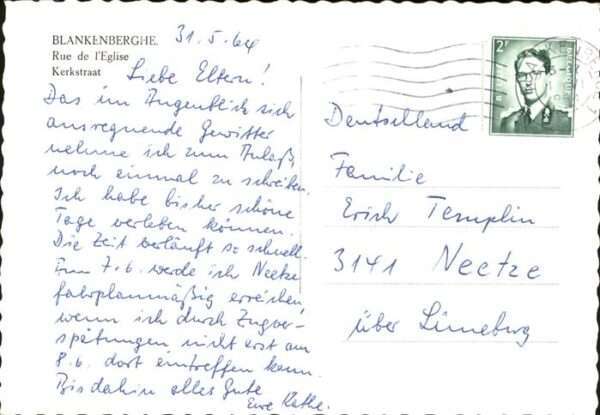 BLANKENBERGHE.
Rue de l'Eglise
Kerkstraat
31.5.64
Liebe Eltern!
Das im Augenblick sich
ausregnende Gewitter
nehme ich zum Anlaß,
noch einmal zu schreiben.
Ich habe bisher schöne
Tage verleben können.
Die Zeit verläuft so schnell.
Am 7.6. werde ich Neetze
fahrplanmäßig erreichen,
wenn ich durch Zugver-
spätungen nicht erst am
8.6. dort eintreffen kann.
Bis dahin alles Gute
Eure Käthe.
2F
Deutschland
Familie
Erich Templin
3141 Neetze
über Lüneburg